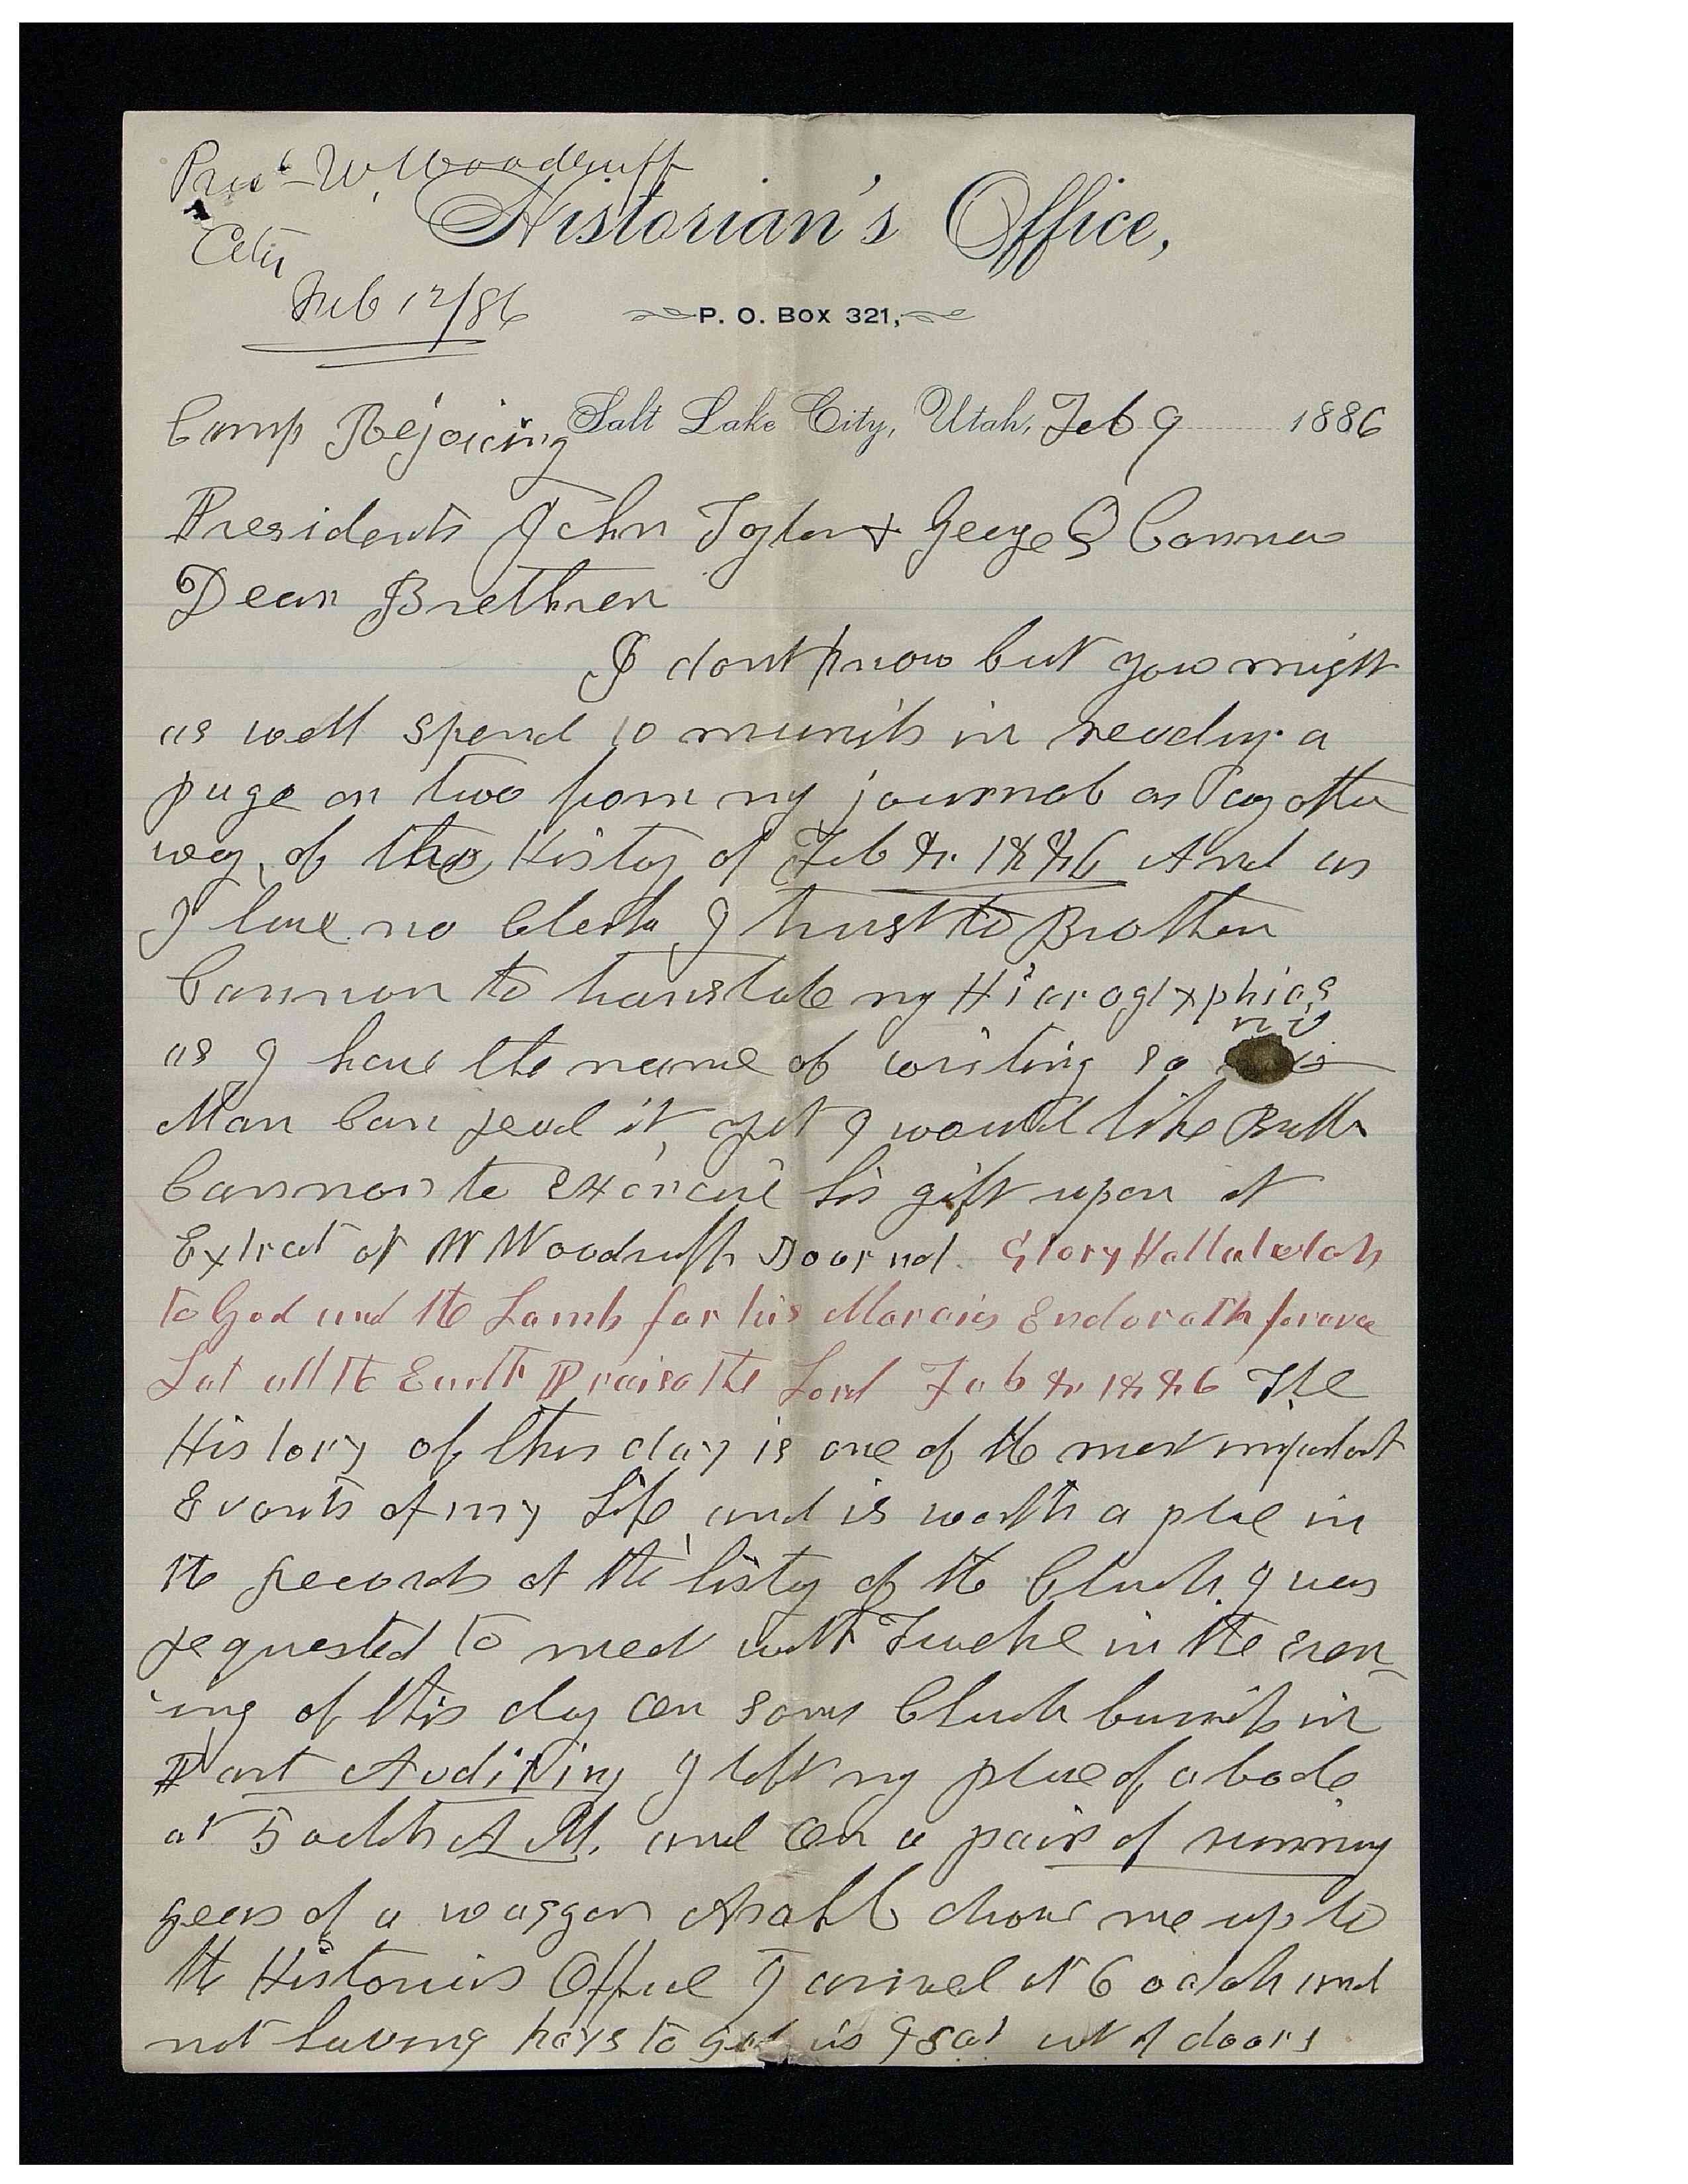 Prest W. Woodruff
City
Feb 12/86
Historian's Office,
P. O. Box 321,
Camp Rejoicing Salt Lake City, Utah, Feb 9 1886
Presidents John Taylor & George Q Cannon
Dear Brethren
I dont know but you might
as well spend 10 munits in reading a
page or two from my journal as any other
way, of the History of Feb 8. 1886 And as
I have no Clerk I trust to Brother
Cannon to translate my Hieroglyphics
as I have the name of writing so no
Man Can read it, yet I would like Brother
Cannon to exercise his gift upon it
Extract of W Woodruffs Journal. Glory Hallalulah
to God and the Lamb for his Marcies Endorath forever
Let all the Earth Praise the Lord Feb 8. 1886 The
History of this day is one of the most important
Events of my Life, and is worth a place in
the records of the history of the Church. I was
requested to meet with Twelve in the even-
ing of this day on some Church buisness in
Part Auditing I left my place of abode
at 5 oclok A M. and on a pair of running
gears of a waggon Asahel drove me up to
the Historians Office I arrived at 6 oclok and
not having keys to get in I sat out of doors